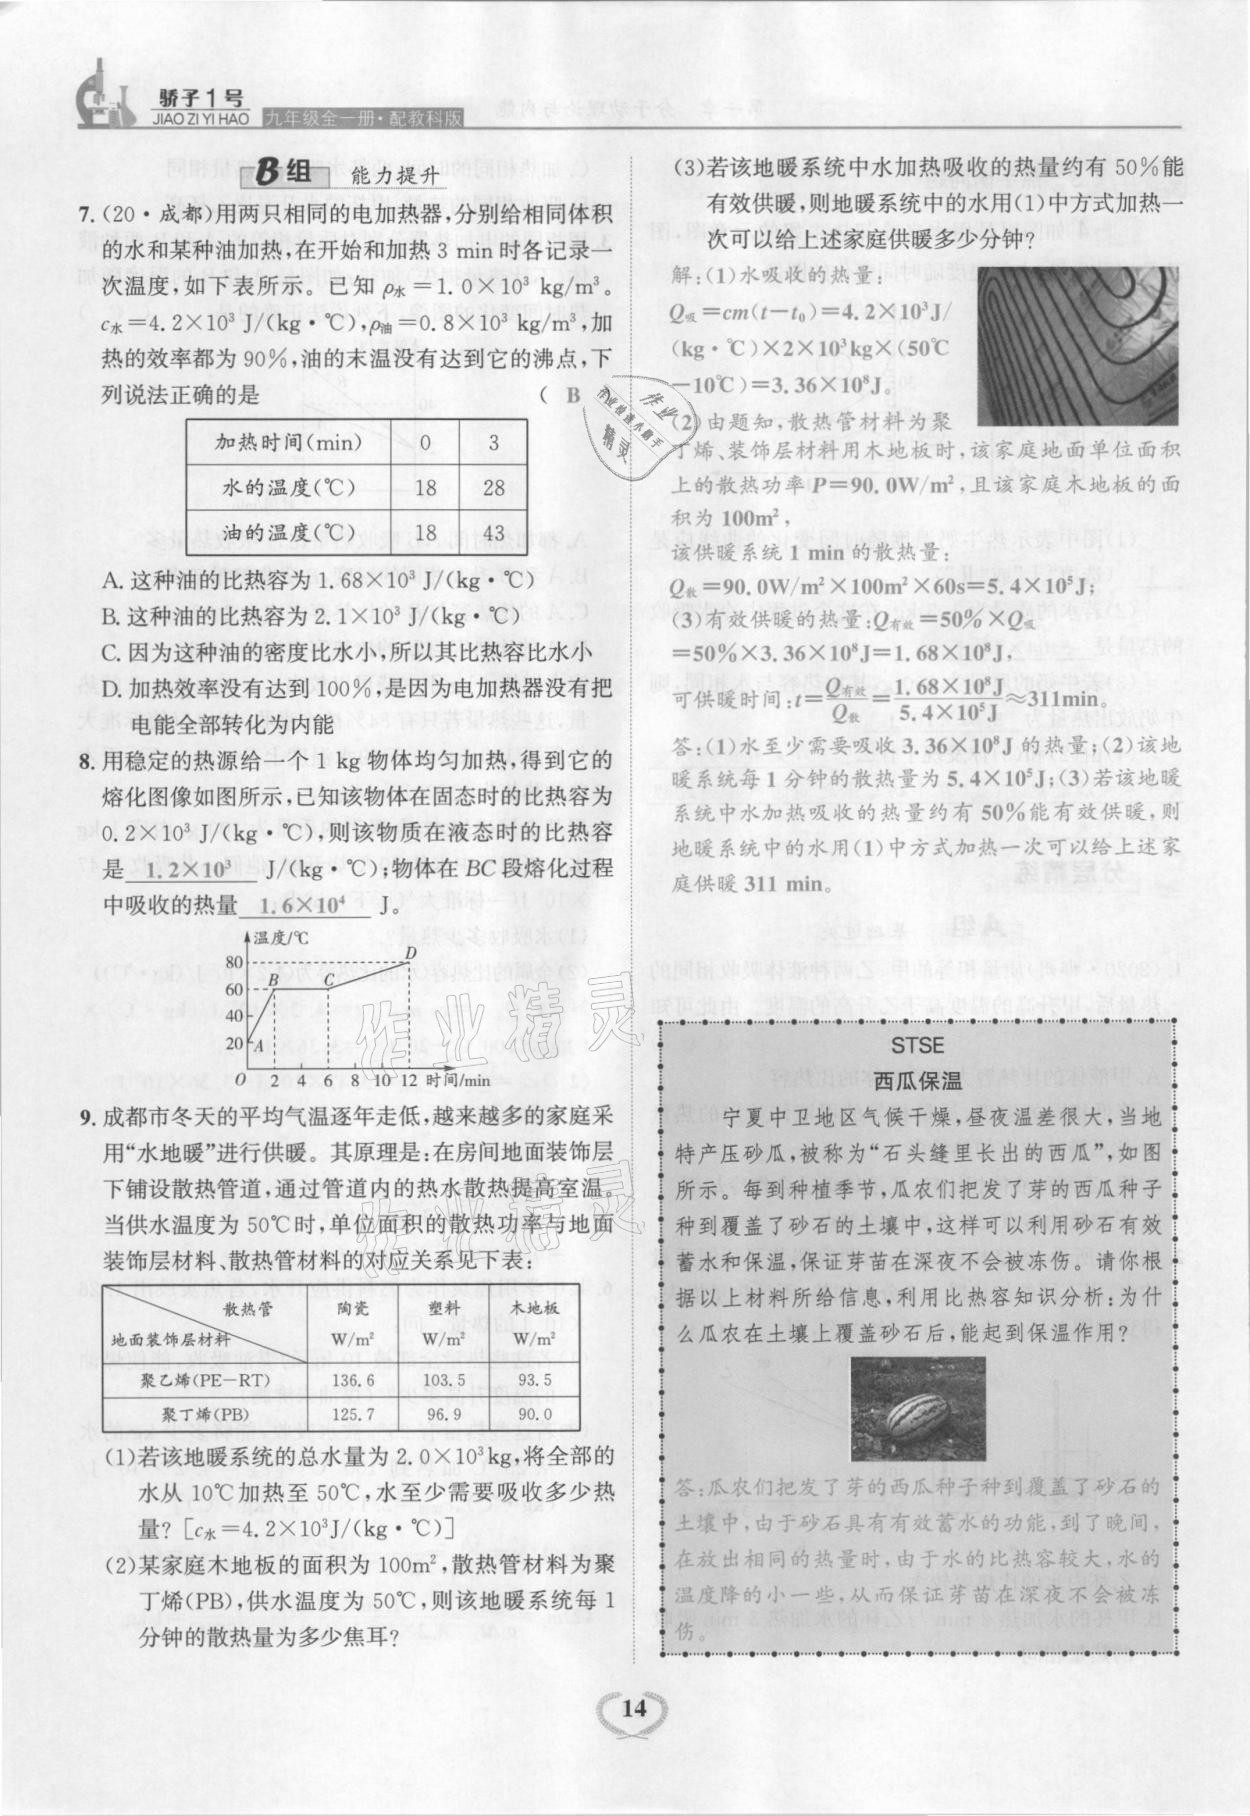 骄子1号
JIAO ZI YI HAO
九年级全一册·配教科版
B组 能力提升
7.(20·成都)用两只相同的电加热器,分别给相同体积
的水和某种油加热,在开始和加热3 min时各记录一
次温度,如下表所示。已知ρ水=1.0×10³ kg/m³。
c水=4.2×10³ J/(kg·℃),ρ油=0.8×10³ kg/m³,加
热的效率都为90%,油的末温没有达到它的沸点,下
列说法正确的是 ( B
加热时间(min) 0 3
水的温度(℃) 18 28
油的温度(℃) 18 43
A. 这种油的比热容为1.68×10³ J/(kg·℃)
B. 这种油的比热容为2.1×10³ J/(kg·℃)
C. 因为这种油的密度比水小,所以其比热容比水小
D. 加热效率没有达到100%,是因为电加热器没有把
电能全部转化为内能
8. 用稳定的热源给一个1 kg物体均匀加热,得到它的
熔化图像如图所示,已知该物体在固态时的比热容为
0.2×10³ J/(kg·℃),则该物质在液态时的比热容
是 1.2×10³ J/(kg·℃);物体在BC段熔化过程
中吸收的热量 1.6×10⁴ J。
温度/℃
80
60
40
20
A
B
C
D
O 2 4 6 8 10 12 时间/min
9. 成都市冬天的平均气温逐年走低,越来越多的家庭采
用“水地暖”进行供暖。其原理是:在房间地面装饰层
下铺设散热管道,通过管道内的热水散热提高室温。
当供水温度为50℃时,单位面积的散热功率与地面
装饰层材料、散热管材料的对应关系见下表:
散热管 陶瓷 塑料 木地板
地面装饰层材料 W/m² W/m² W/m²
聚乙烯(PE-RT) 136.6 103.5 93.5
聚丁烯(PB) 125.7 96.9 90.0
(1)若该地暖系统的总水量为2.0×10³kg,将全部的
水从10℃加热至50℃,水至少需要吸收多少热
量?[c水=4.2×10³J/(kg·℃)]
(2)某家庭木地板的面积为100m²,散热管材料为聚
丁烯(PB),供水温度为50℃,则该地暖系统每1
分钟的散热量为多少焦耳?
(3)若该地暖系统中水加热吸收的热量约有50%能
有效供暖,则地暖系统中的水用(1)中方式加热一
次可以给上述家庭供暖多少分钟?
解:(1)水吸收的热量:
Q吸=cm(t-t₀)=4.2×10³J/
(kg·℃)×2×10³kg×(50℃
-10℃)=3.36×10⁸J。
(2)由题知,散热管材料为聚
丁烯、装饰层材料用木地板时,该家庭地面单位面积
上的散热功率P=90.0W/m²,且该家庭木地板的面
积为100m²,
该供暖系统1 min的散热量:
Q散=90.0W/m²×100m²×60s=5.4×10⁵J;
(3)有效供暖的热量:Q有效=50%×Q吸
=50%×3.36×10⁸J=1.68×10⁸J,
可供暖时间:t=Q有效/Q散=1.68×10⁸J/5.4×10⁵J≈311min。
答:(1)水至少需要吸收3.36×10⁸J的热量;(2)该地
暖系统每1分钟的散热量为5.4×10⁵J;(3)若该地暖
系统中水加热吸收的热量约有50%能有效供暖,则
地暖系统中的水用(1)中方式加热一次可以给上述家
庭供暖311 min。
STSE
西瓜保温
宁夏中卫地区气候干燥,昼夜温差很大,当地
特产压砂瓜,被称为“石头缝里长出的西瓜”,如图
所示。每到种植季节,瓜农们把发了芽的西瓜种子
种到覆盖了砂石的土壤中,这样可以利用砂石有效
蓄水和保温,保证芽苗在深夜不会被冻伤。请你根
据以上材料所给信息,利用比热容知识分析:为什
么瓜农在土壤上覆盖砂石后,能起到保温作用?
答:瓜农们把发了芽的西瓜种子种到覆盖了砂石的
土壤中,由于砂石具有有效蓄水的功能,到了晚间,
在放出相同的热量时,由于水的比热容较大,水的
温度降的小一些,从而保证芽苗在深夜不会被冻
伤。
作业精灵
作业精灵
14